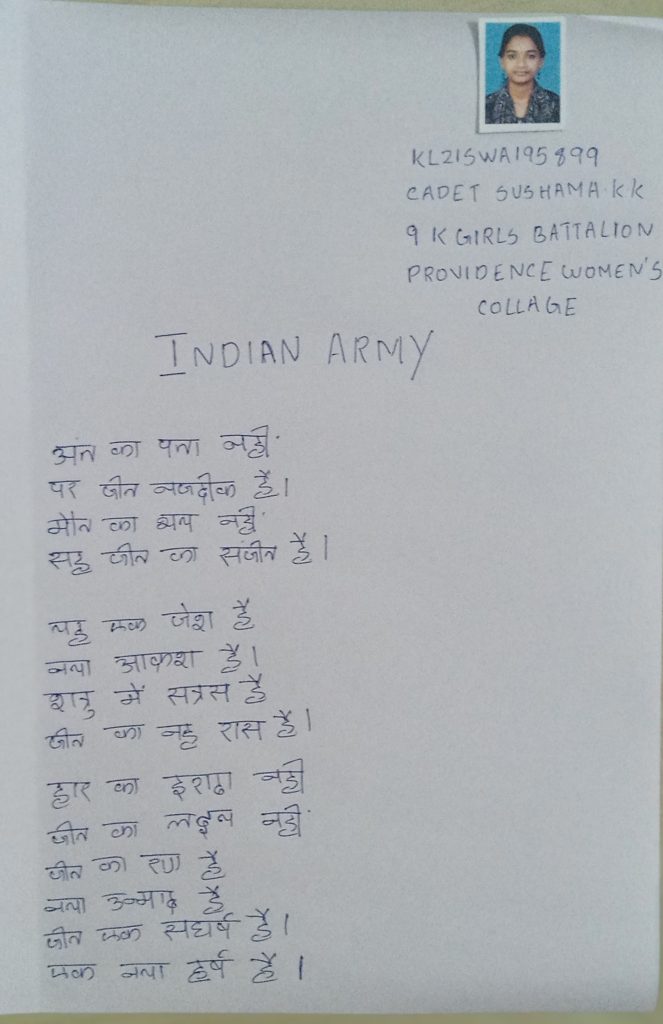 KL21SWA195899
CADET SUSHAMA.K.K
9 K GIRLS BATTALION
PROVIDENCE WOMEN'S
COLLAGE
INDIAN ARMY
अंत का पता नहीं
पर जीत नजदीक है।
मौत का भय नहीं
सह जीत का संजीत है।
यह एक जेश है
नया आकश है।
शत्रु में सत्रस है
जीत का वह रास है।
हार का इरादा नहीं
जीत का नहीं
जीत का रण है
नया उन्माद है
जीत एक सघर्ष है।
एक नया हर्ष है।